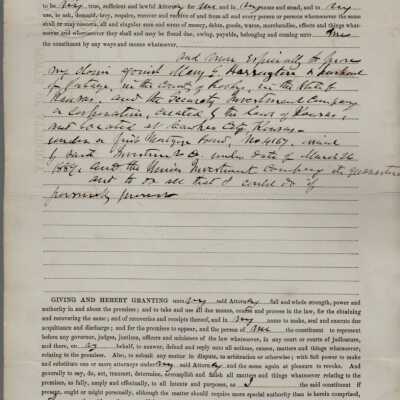 to be my true, sufficient and lawful Attorney for me and in my name and stead, and to my
use, to ask, demand, levy, require, recover and receive of and from all and every person or persons whomsoever the same
shall or may concern, all and singular sum and sums of money, debts, goods, wares, merchandise, effects and things what-
soever and wheresoever they shall and may be found due, owing, payable, belonging and coming unto me
the constituent by ways and means whatsoever,
and more Especially to prove
my claim against Mary E. Harrington & husband
of , in the County of , in the State of
Kansas, and the Security Investment Company
a Corporation, created by the laws of Kansas,
and located at City, Kansas
under a Mortgage Bond, No 4167, issued
by said Investment Co. under date of March
1887, and the Investment Company the
and to do all that I could do if
personally present
GIVING AND HEREBY GRANTING unto my said Attorney full and whole strength, power and
authority in and about the premises; and to take and use all due means, course and process in the law, for the obtaining
and recovering the same; and of recoveries and receipts thereof, and in my name to make, seal and execute due
acquittance and discharge; and for the premises to appear, and the person of me the constituent to represent
before any governor, judges, justices, officers and ministers of the law whatsoever, in any court or courts of judicature,
and there, on my behalf, to answer, defend and reply unto all actions, causes, matters and things whatsoever,
relating to the premises. Also, to submit any matter in dispute, to arbitration or otherwise; with full power to make
and substitute one or more attorneys under my said Attorney and the same again at pleasure to revoke. And
generally to say, do, act, transact, determine, accomplish and finish all matters and things whatsoever relating to the
premises, as fully, amply and effectually, to all intents and purposes, as I the said constituent if
present, ought or might personally, although the matter should require more special authority than is herein comprised,